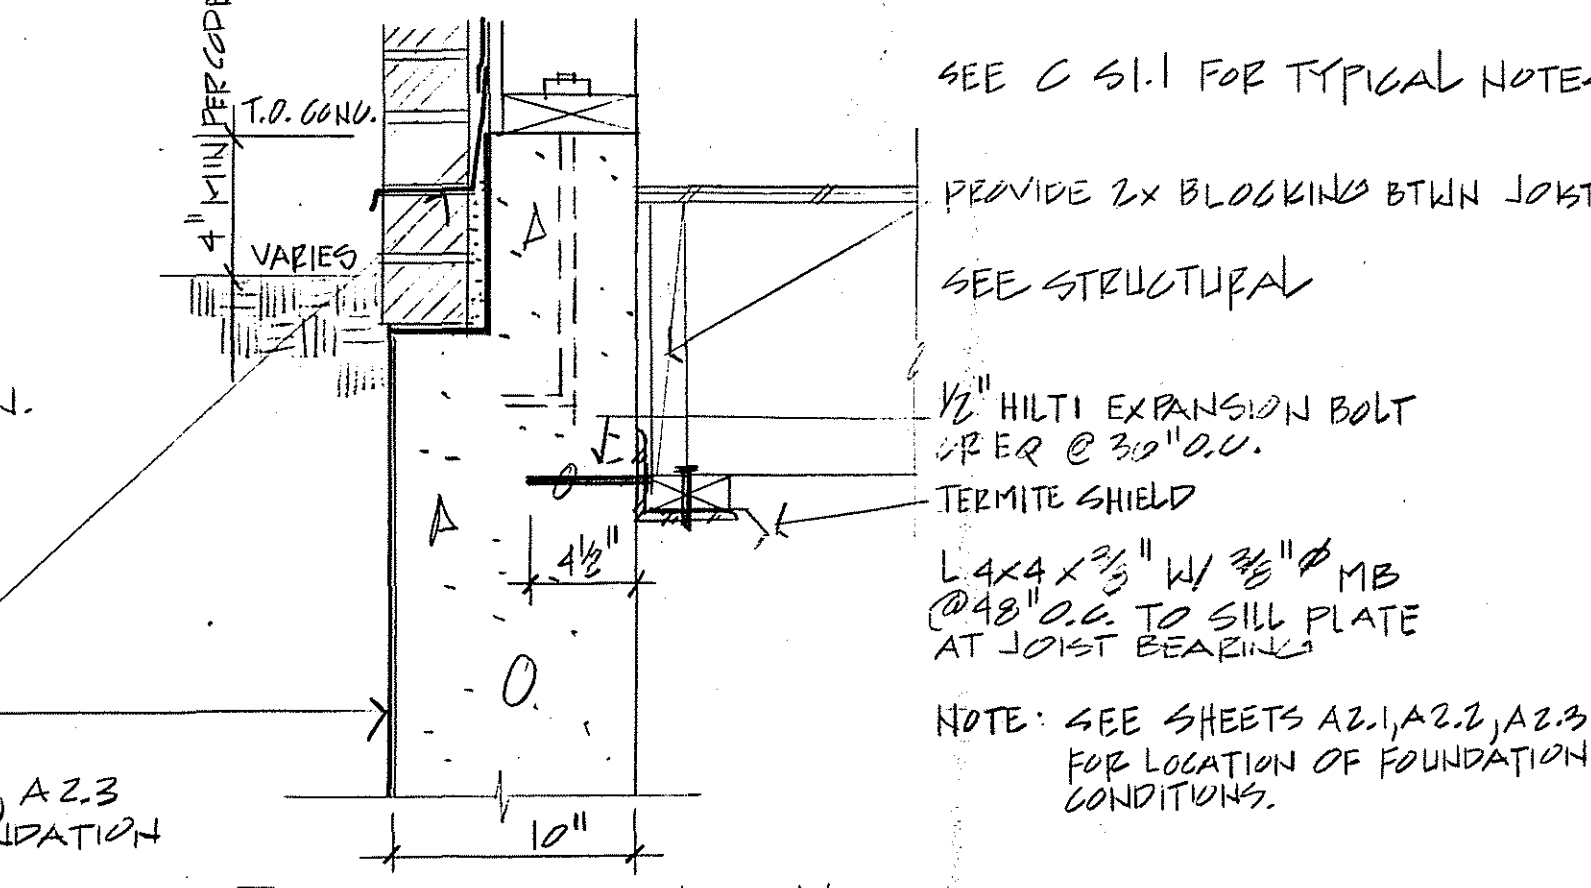 4" MIN PER CODE
T.O. CONC.
VARIES
SEE C S1.1 FOR TYPICAL NOTE
PROVIDE 2X BLOCKING BTWN JOIST
SEE STRUCTURAL
1/2" HILTI EXPANSION BOLT
OR EQ @ 30" O.C.
TERMITE SHIELD
4 1/2"
L 4X4 X 3/8" W/ 3/8" Ø MB
@ 48" O.C. TO SILL PLATE
AT JOIST BEARING
NOTE: SEE SHEETS A2.1, A2.2, A2.3
FOR LOCATION OF FOUNDATION
CONDITIONS.
A2.3
NDATION
10"